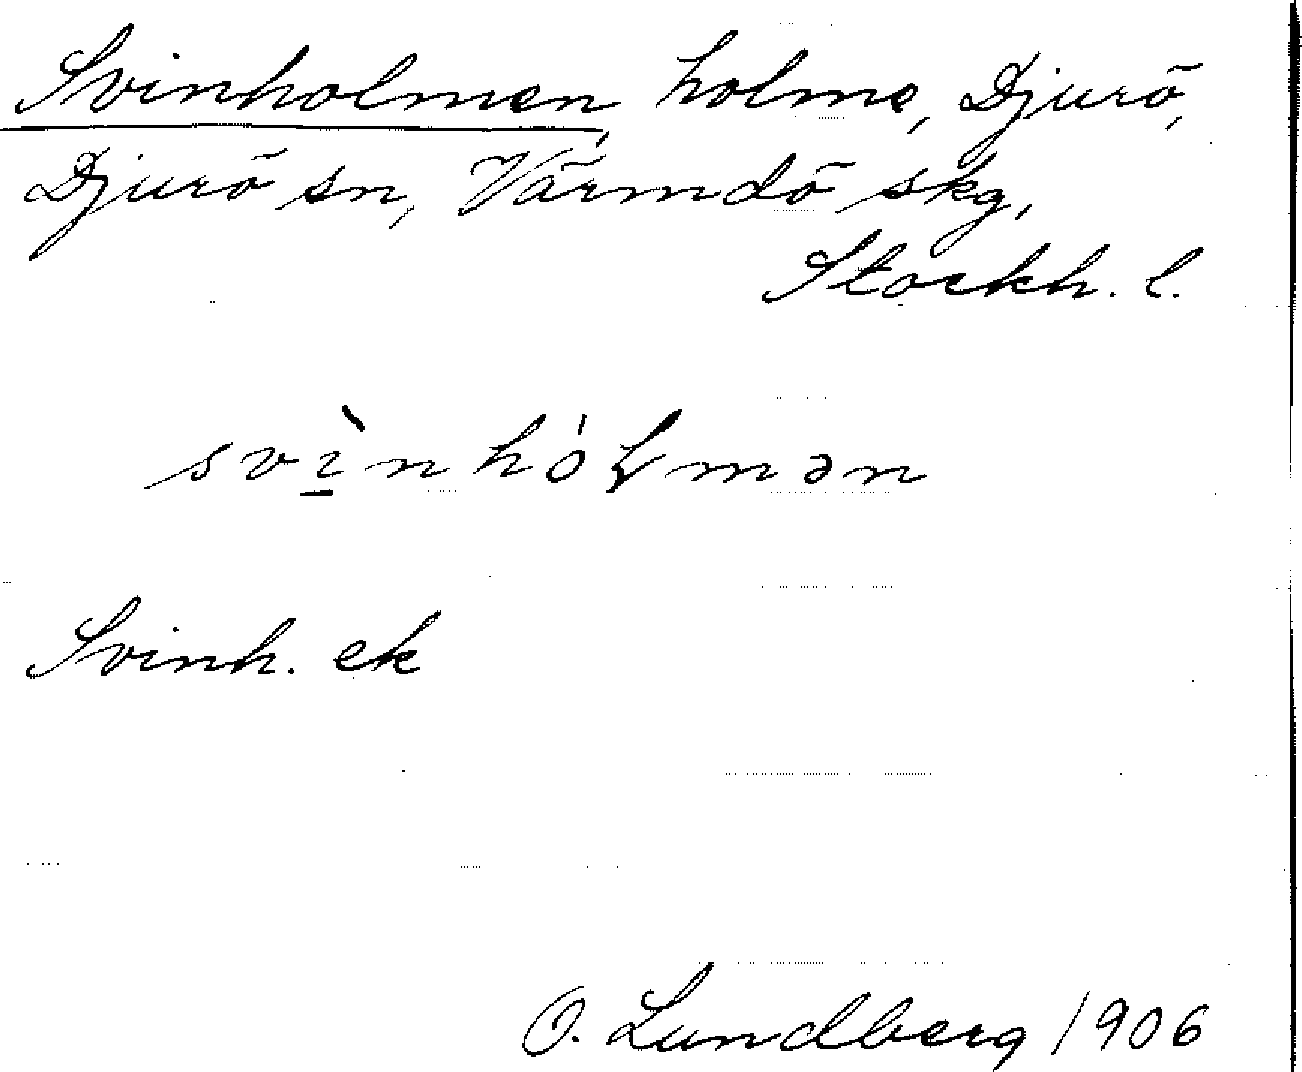 Svinholmen, holme, Djurö,
Djurö sn, Värmdö skg,
Stockh. l.
svı̱̀nhóɫmən
Svinh. ek
O. Lundberg 1906